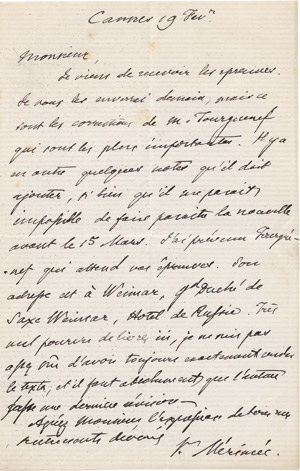 Cannes 19 Févr.
Monsieur,
Je viens de recevoir les épreuves.
Je vous les enverrai demain, mais ce
sont les corrections de M. Tourguenef
qui sont les plus importantes. Il y a
en outre quelques notes qu'il doit
ajouter, si bien qu'il me parait
impossible de faire paraitre la nouvelle
avant le 1er Mars. J'ai prévenu Tourgué-
nef qui attend vos épreuves. Son
adresse est à Weimar, gd Duché de
Saxe Weimar, Hotel de Russie. Très
mal pourvu de livres ici, je ne suis pas
sûr d'avoir toujours exactement rendu
le texte, et il faut absolument que l'auteur
fasse une dernière révision.
Agréez Monsieur l'expression de tous mes
sentiments dévoués
Pr. Mérimée